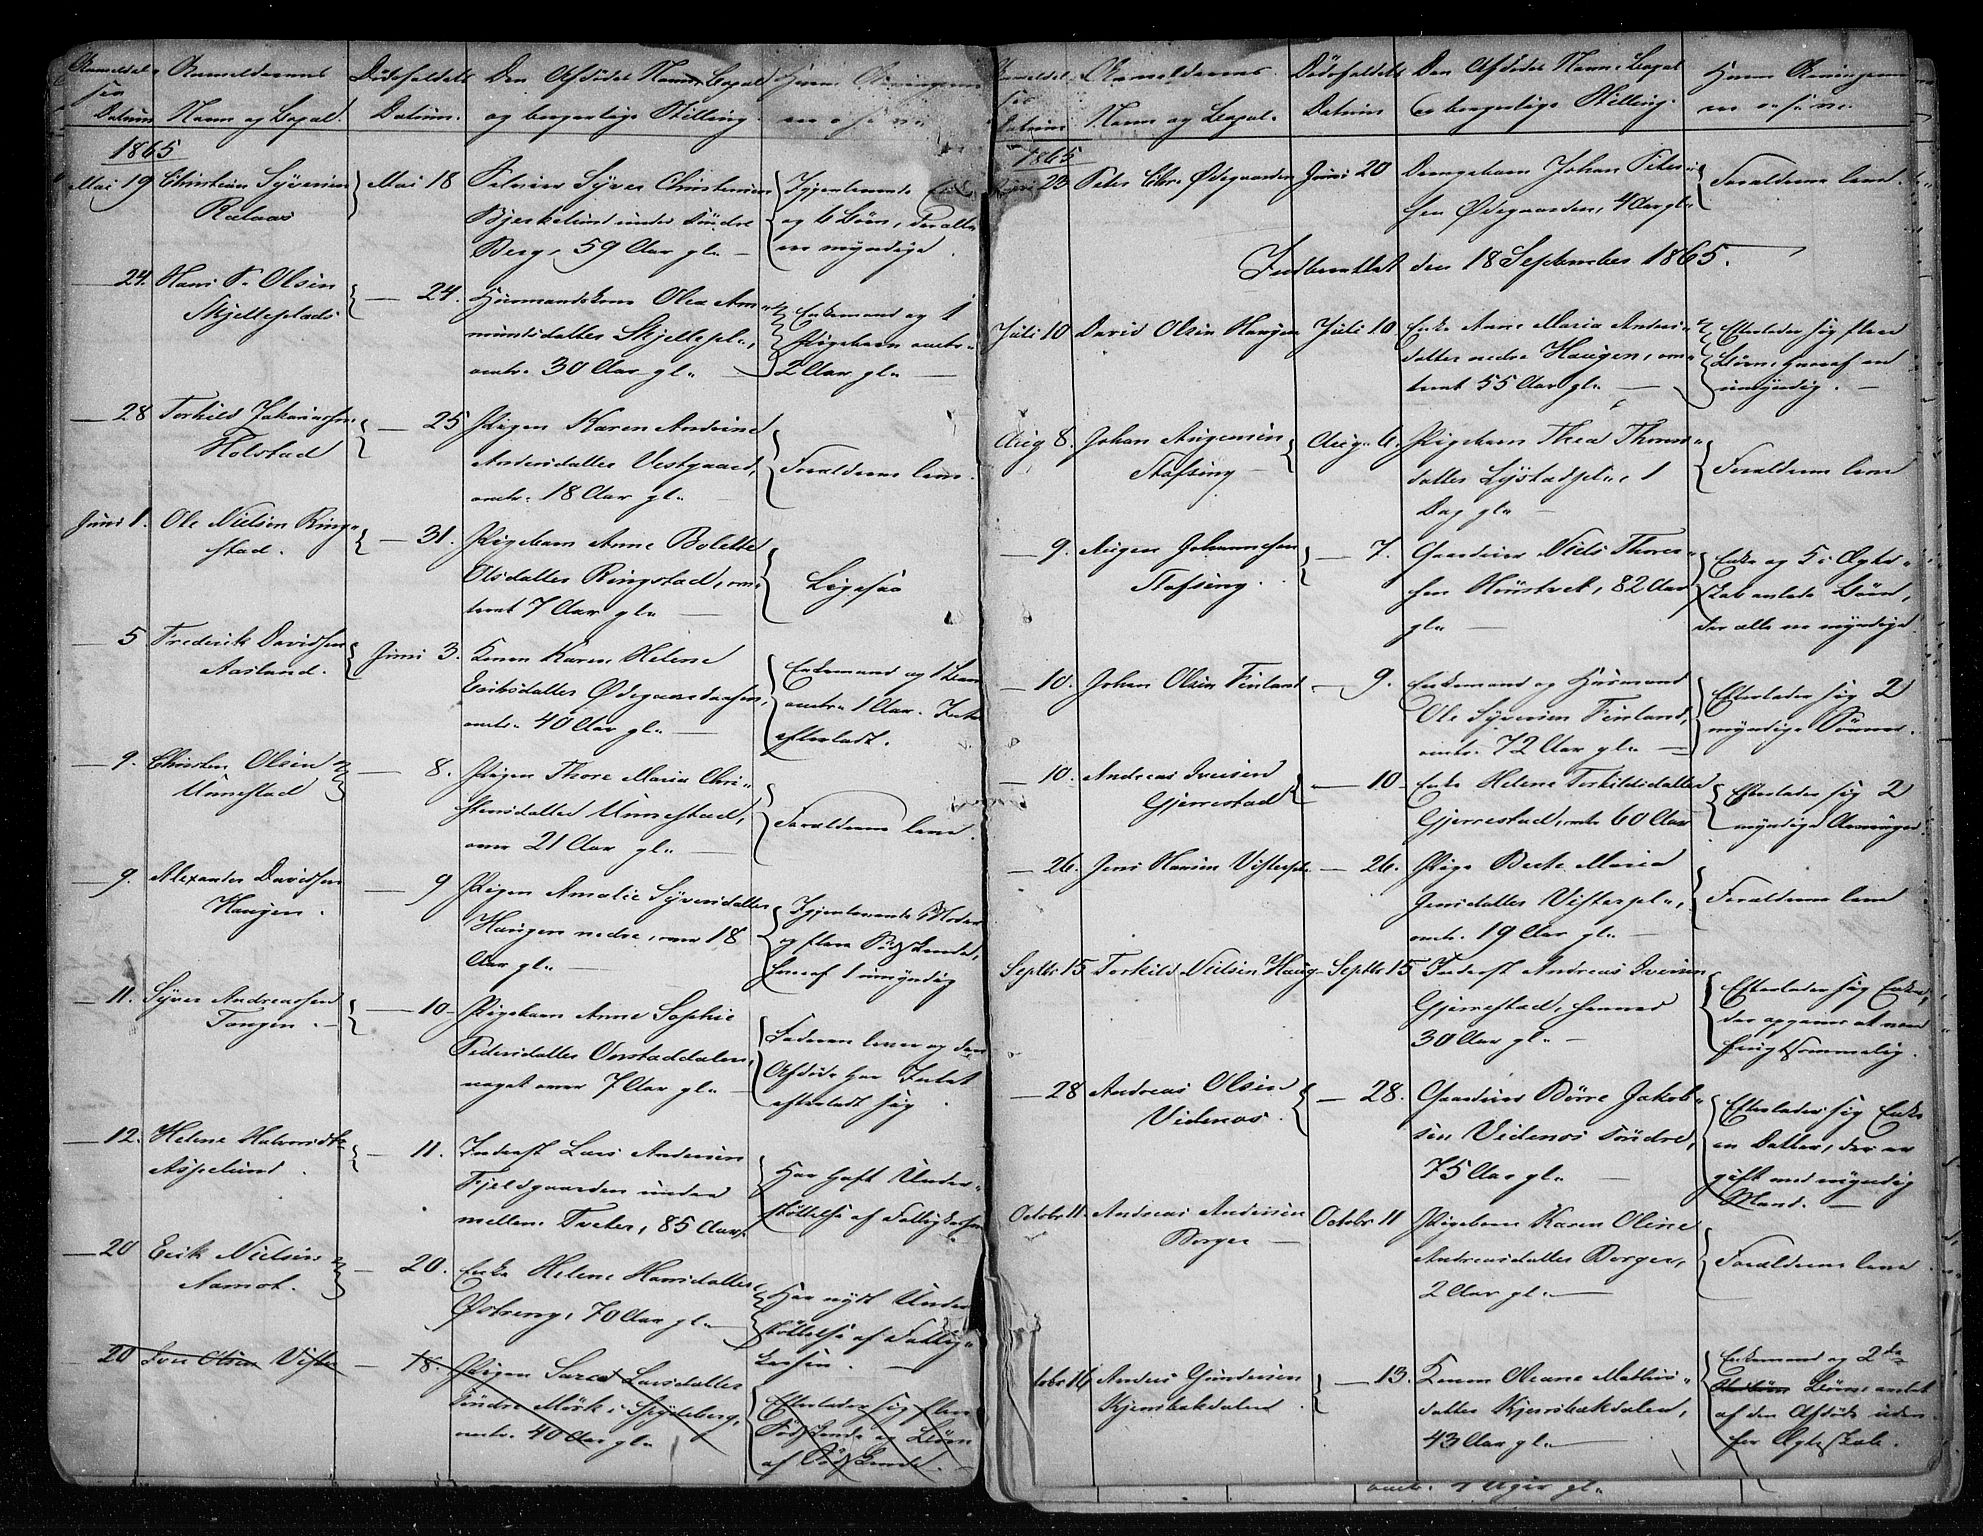 Anmeldel-
sen
Datum
Anmelderens
Navn og Bopæl.
Dödsfaldets
Datum.
Den Afdødes Navn, Bopæl
og borgerlige Stilling.
1865
Mai 19 Christian Syversen
Mai 18
Syver Christensen
Bjerkelund under söndre
Berg, 59 Aar gl.
Igjenlevende Enke
og 6 Börn, der alle
ere myndige
24. Hans P. Olsen
Skjelleplads
24. Huusmandskone Olea Am-
mundsdatter Skjellepl.,
omtr. 30 Aar gl.
Enkemand og 1
Pigebarn omtr.
2 Aar gl.
28 Torkild Jakobsen
Holstad
25 Pigen Karen Andrine
Andersdatter Vestgaard,
omtr. 18 Aar gl.
Forældrene leve.
Juni 1. Ole Nielsen Ring-
stad.
31. Pigebarn Anne Bolette
Olsdatter Ringstad, om-
trent 7 Aar gl.
Ligesaa
5 Frederik Davidsen
Aasland.
Juni 3. Konen Karen Helene
Eriksdatter Ødegaardsaasen,
omtr. 40 Aar gl.
Enkemand og 1 Barn
omtr. 1 Aar. Intet
efterladt.
9. Christen Olsen
Unnestad
8. Pigen Thore Maria Chri-
stensdatter Unnestad,
over 21 Aar gl.
Forældrene leve.
9. Alexander Davidsen
Haugen.
9 Pigen Amalie Syversdatter
Haugen nedre, over 18
Aar gl.
Igjenlevende Moder
og flere Södskende,
hvoraf 1 umyndig
11. Syver Andreassen
Tangen.
10 Pigebarn Anne Sophie
Pedersdatter Onstaddalen,
noget over 7 Aar gl.
Faderen lever og den
Afdøde har Intet
efterladt sig.
12. Helene Halvorsdtr
Aspelund.
11. Inderst Lars Andersen
Fjeldgaarden under
mellem Tveter, 85 Aar.
Har havt Under-
støttelse af Fattigkassen
20 Erik Nielsen
Aamot.
20. Enke Helene Hansdatter
Østreng, 70 Aar gl.
Har nydt Under-
støttelse af Fattig-
kassen.
20 Iver Olsen Vister
18. Pigen Sara Larsdatter
Söndre Mörk i Spydeberg,
omtr. 40 Aar gl.
Efterlader sig flere
Södskende og Börn
af Södskende.
Anmeldel-
sen
Datum
Anmelderens
Navn og Bopæl.
Dödsfaldets
Datum
Den Afdødes Navn, Bopæl
og borgerlige Stilling.
1865
Juni 23 Peter Chr. Ødegaarden
Juni 20
Drengebarn Johan Peter-
sen Ødegaarden, 4 Aar gl.
Forældrene leve.
Indberettet den 18 September 1865.
Juli 10 David Olsen Haugen
Juli 10
Enke Anne Maria Anders-
datter nedre Haugen, om-
trent 55 Aar gl.
Efterlader sig flere
Börn, hvoraf en
umyndig.
Aug 8. Johan Augensen
Stafsing
Aug. 6. Pigebarn Thea Thores-
datter Lystadpl., 1
Dag gl.
Forældrene leve
9. Augen Johannesen
Stafsing.
7. Gaardmand Niels Thores-
sen Hönstvet, 82 Aar
gl.
Enke og 5 i Ægte-
skab avlede Börn,
der alle ere myndige.
10. Johan Olsen Finland
9. Enkemand og Husmand
Ole Syversen Finland,
omtr. 72 Aar gl.
Efterlader sig 2
myndige Sönner.
10. Andreas Iversen
Gjerrestad
10 Enke Helene Torkildsdatter
Gjerrestad, omtr 60 Aar
Efterlader sig 2
myndige Arvinger.
26. Jens Hansen Visterpl.
26. Pige Berte Maria
Jensdatter Visterpl.,
omtr. 19 Aar gl.
Forældrene leve
Septbr 15 Torkild Nielsen Haug
Septbr 15
Inderst Andreas Iversen
Gjerrestad, henved
30 Aar gl.
Efterlader sig Enke,
der opgives at være
frugtsommelig.
28 Andreas Olsen
Videnæs.
28. Gaardmand Börre Jakob-
sen Videnæs söndre,
75 Aar gl.
Efterlader sig Enke
en Datter, der er
gift med myndig
Mand.
Octobr 11. Andreas Andersen
Berger
Octobr 11
Pigebarn Karen Oline
Andreasdatter Berger,
2 Aar gl.
Forældrene leve
Octobr 16 Anders Gundersen
Kjensbakdalen
13. Konen Oleane Mathis-
datter Kjensbakdalen,
43 Aar gl.
Enkemand og 2de
Börn avlet
af den Afdøde uden-
for Ægteskab.
omtr. 7 Uger gl.